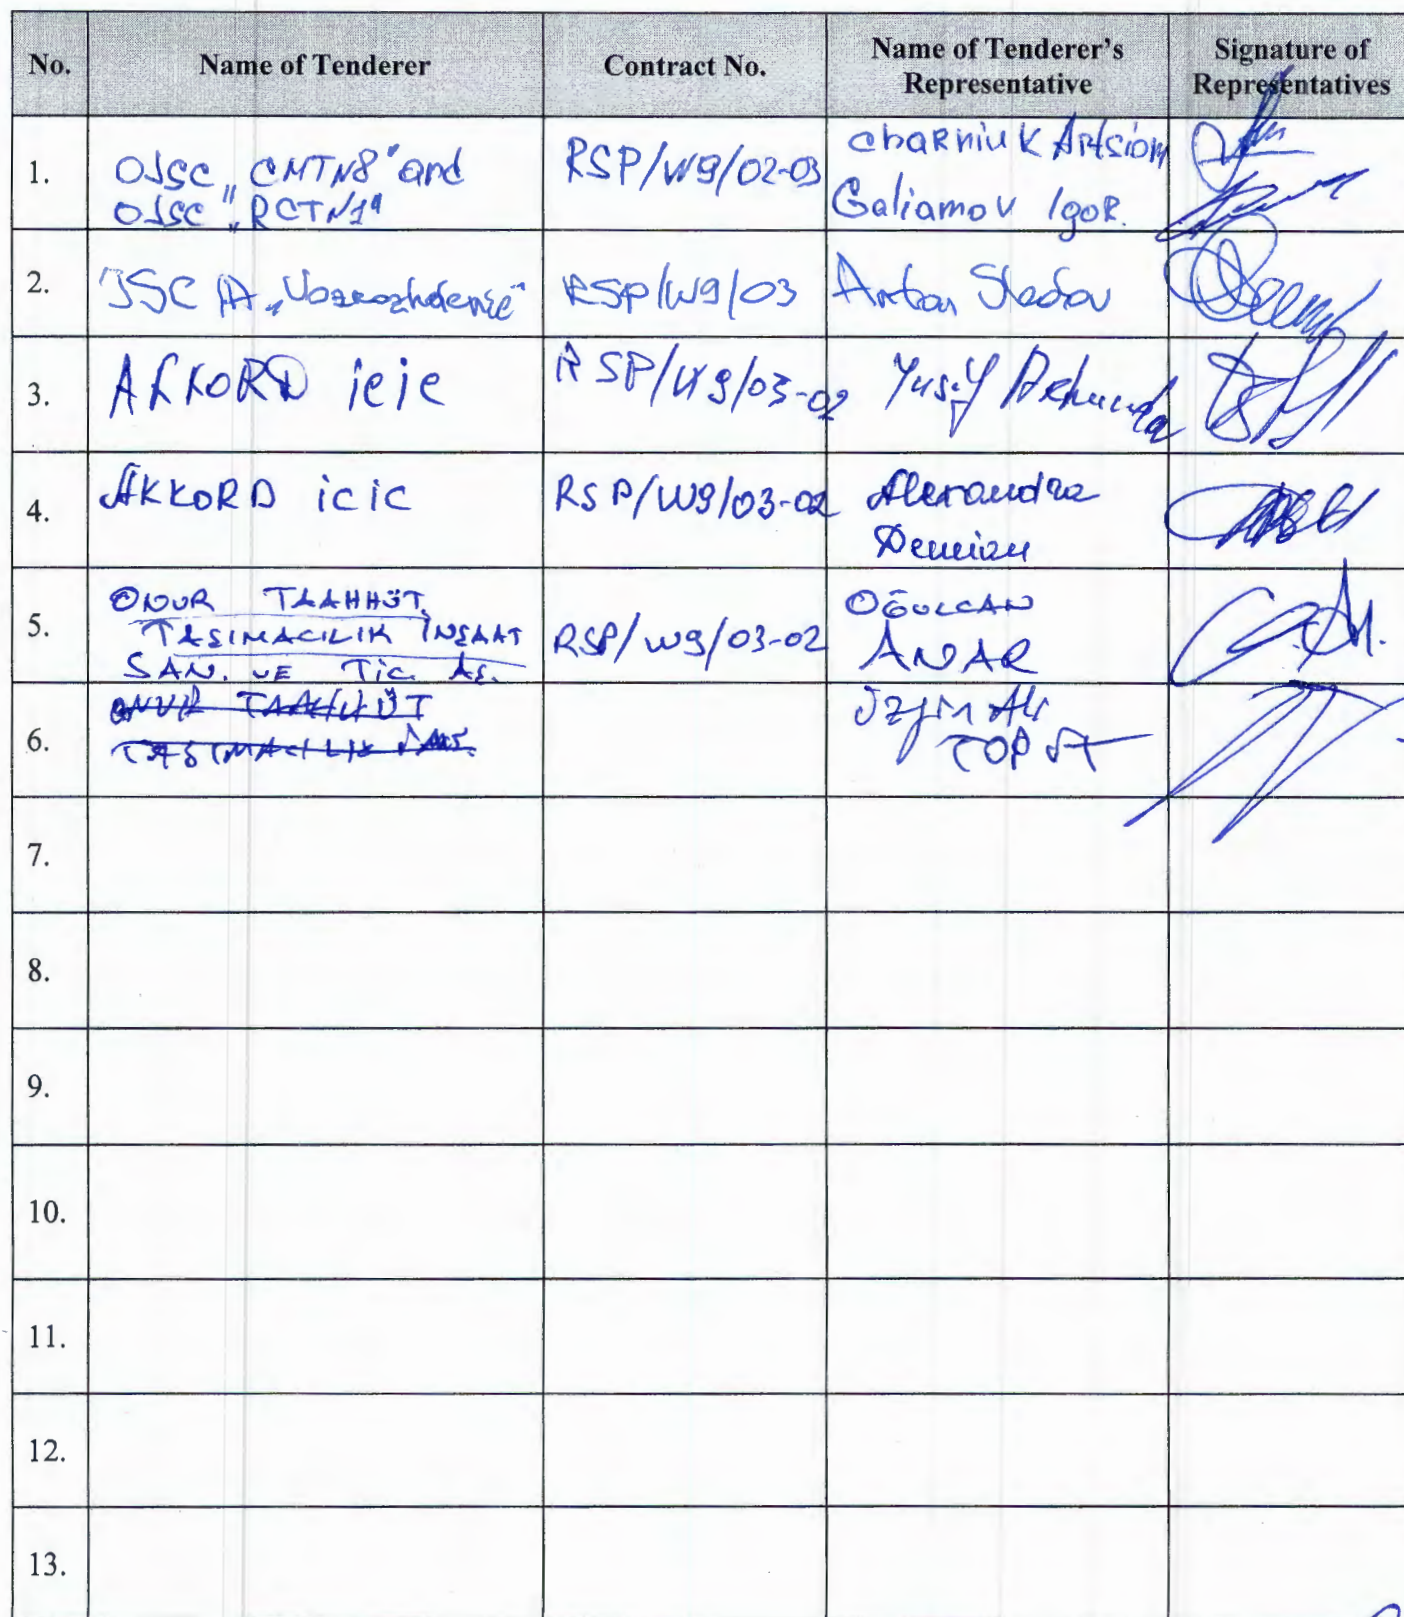 No. Name of Tenderer Contract No. Name of Tenderer's Representative Signature of Representatives
1. OJSC „CMTN8" and OJSC „RCTN1" RSP/W9/02-03 Charniuk Artsiom Galiamov Igor.
2. JSC „Vozrozhdenie" RSP/W9/03 Anton
3. AKKORD icic RSP/W9/03-02 Yusif
4. AKKORD icic RSP/W9/03-02 Alexandra Demian
5. ONUR TAAHHÜT TAŞIMACILIK İNŞAAT SAN. VE TİC. AŞ. RSP/W9/03-02 OĞULCAN ANAR
6. ONUR TAAHHÜT TAŞIMACILIK İNŞ. Ali
7.
8.
9.
10.
11.
12.
13.